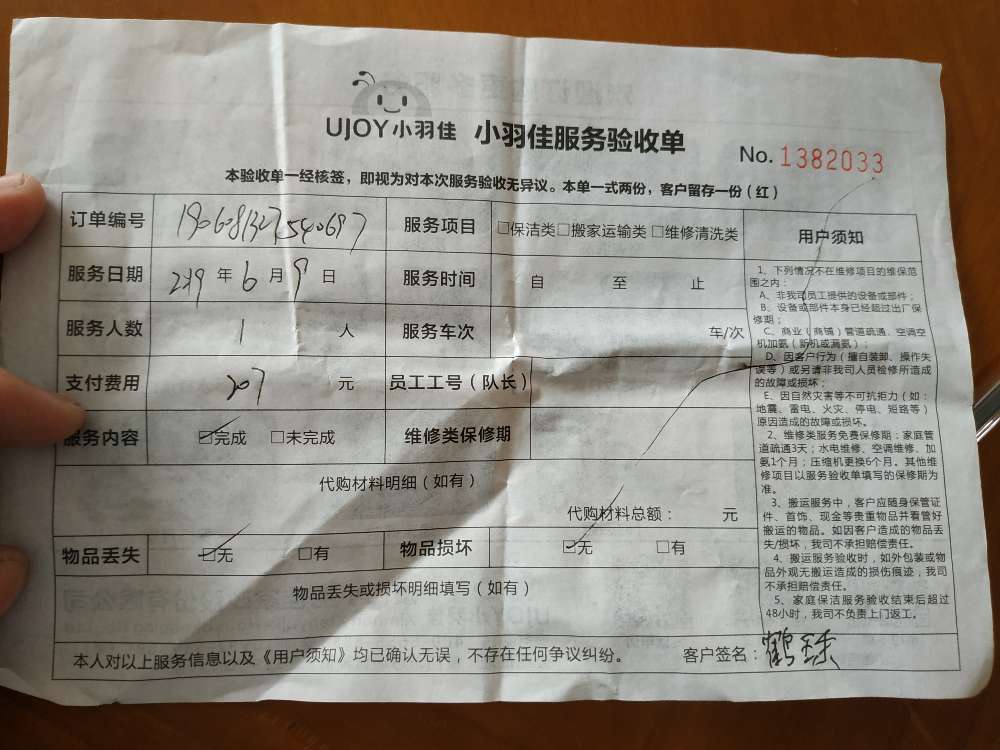 UJOY小羽佳 小羽佳服务验收单
No. 1382033
本验收单一经核签，即视为对本次服务验收无异议。本单一式两份，客户留存一份（红）
订单编号
服务项目 □保洁类□搬家运输类 □维修清洗类
服务日期 2019 年 6 月 9 日 服务时间 自 至 止
服务人数 1 人 服务车次 车/次
支付费用 207 元 员工工号（队长）
服务内容 ☑完成 □未完成 维修类保修期
代购材料明细（如有）
代购材料总额： 元
物品丢失 ☑无 □有 物品损坏 ☑无 □有
物品丢失或损坏明细填写（如有）
本人对以上服务信息以及《用户须知》均已确认无误，不存在任何争议纠纷。 客户签名：
用户须知
1、下列情况不在维修项目的维保范
围之内：
A、非我司员工提供的设备或部件；
B、设备或部件本身已经超过出厂保
修期；
C、商业（商铺）管道疏通、空调空
机加氨（新机或漏氨）；
D、因客户行为（擅自装卸、操作失
误等）或另请非我司人员检修所造成
的故障或损坏；
E、因自然灾害等不可抗拒力（如：
地震、雷电、火灾、停电、短路等）
原因造成的故障或损坏。
2、维修类服务免费保修期：家庭管
道疏通3天；水电维修、空调维修、加
氨1个月；压缩机更换6个月。其他维
修项目以服务验收单填写的保修期为
准。
3、搬运服务中，客户应随身保管证
件、首饰、现金等贵重物品并看管好
搬运的物品。如因客户造成的物品丢
失/损坏，我司不承担赔偿责任。
4、搬运服务验收时，如外包装或物
品外观无搬运造成的损伤痕迹，我司
不承担赔偿责任。
5、家庭保洁服务验收结束后超过
48小时，我司不负责上门返工。